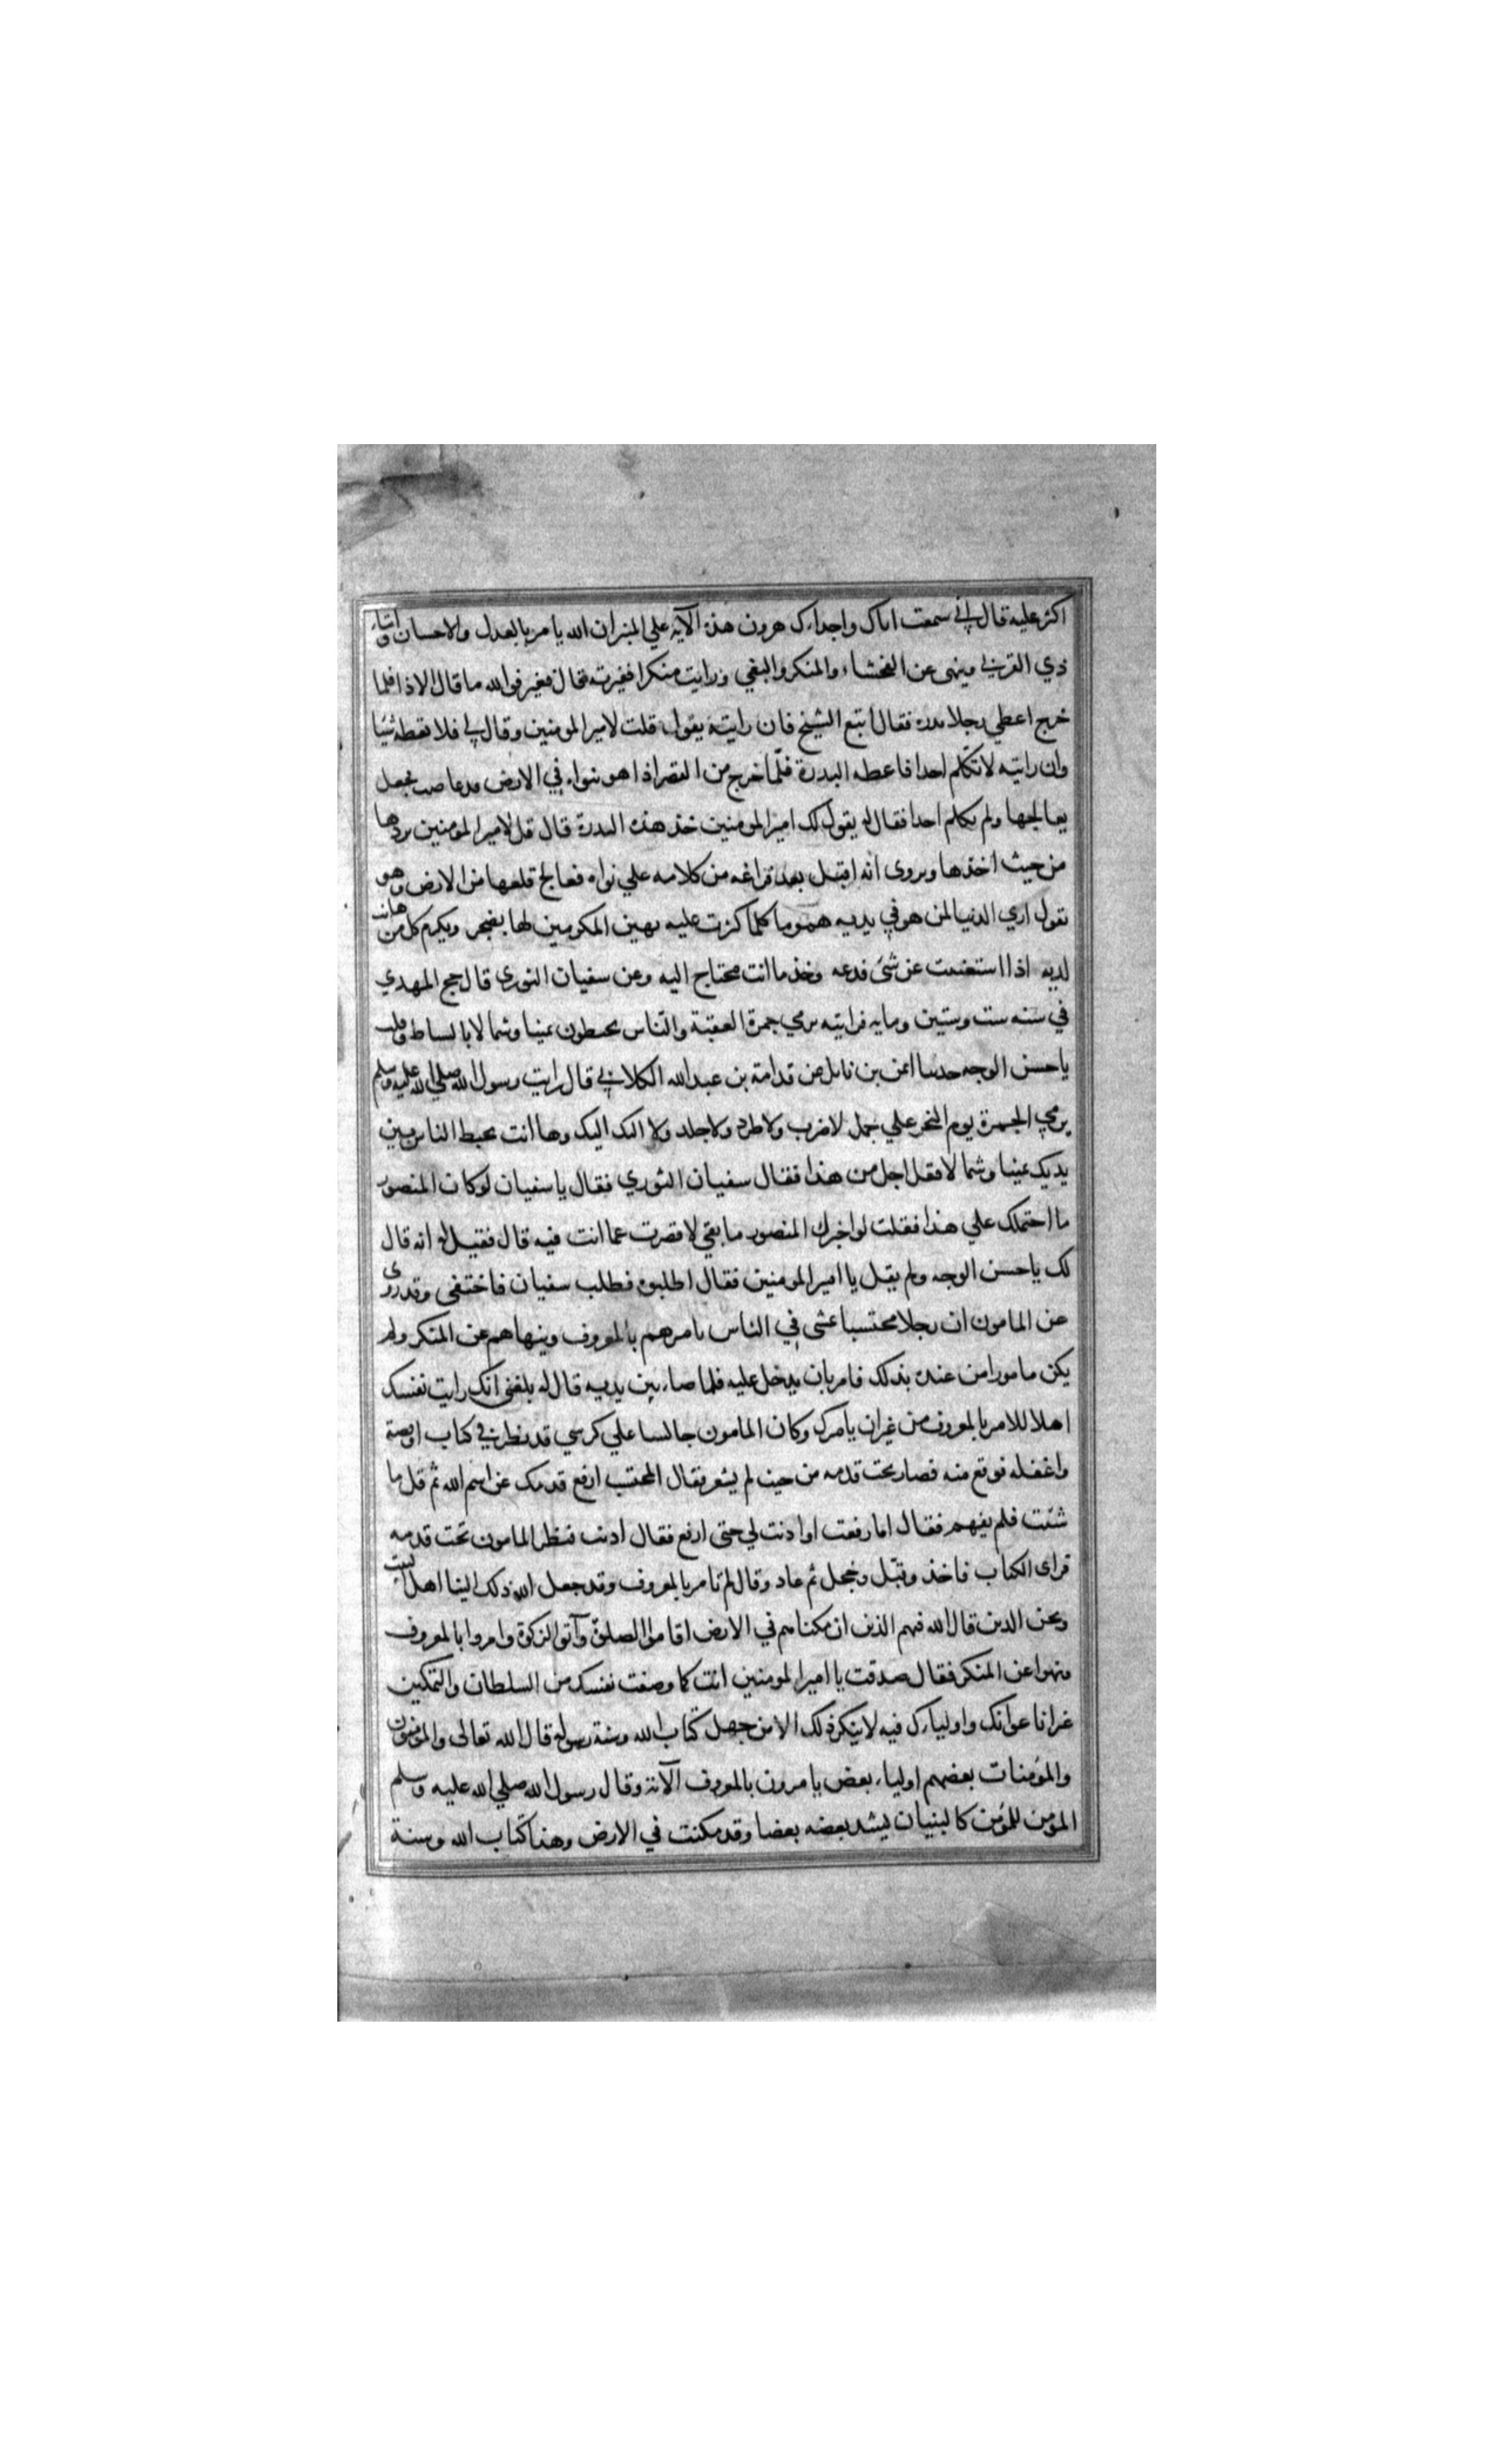 اكثر عليه قال اني سمعت اباك واجدادك هرون هذه الآية علي المنبر ان الله يامر بالعدل والاحسان وايتاء
ذي القربي وينهى عن الفحشاء والمنكر والبغي ورايت منكرا فغيرته قال فغير فوالله ما قال الا ذا فلما
خرج اعطي رجلا بدره فقال اتبع الشيخ فان رايته يقول قلت لامير المومنين وقال لي فلا تعطه شيئا
وان رايته لا تكلم احدا فاعطه البدرة فلما خرج من القصر اذا هو بنواه في الارض فجعل
يعالجها ولم يكلم احدا فقال له يقول لك امير المومنين خذ هذه البدرة قال قل لامير المومنين يردها
من حيث اخذها ويروى انه اقبل بعد فراغه من كلامه علي نواه فعالج قلعها من الارض وهو
يقول اري الدنيا لمن هو في يديه هموما كلما كثرت عليه تهين المكرمين لها بصغر ويكرم كل من هانت
لديه اذا استغنيت عن شئ فدعه وخذ ما انت محتاج اليه وعن سفيان الثوري قال حج المهدي
في سنه ست وستين ومايه فرايته يرمي جمرة العقبة والناس يخبطون يمينا وشمالا بالسياط فقلت
يا حسن الوجه حدثنا ايمن بن نابل عن قدامة بن عبد الله الكلابي قال رايت رسول الله صلي الله عليه وسلم
يرمي الجمرة يوم النحر علي جمل لا ضرب ولا طرد ولا جلد ولا اليك اليك وها انت يخبط الناس بين
يديك يمينا وشمالا فقال اجل من هذا فقال سفيان الثوري فقال يا سفيان لو كان المنصور
ما احتملك علي هذا فقلت لو اخبرك المنصور ما بقي لاقصرت عما انت فيه قال فقيل له انه قال
لك يا حسن الوجه ولم يقل يا امير المومنين فقال اطلبوه فطلب سفيان فاختفى وقد روى
عن المامون ان رجلا محتسبا يمشي في الناس يامرهم بالمعروف وينهاهم عن المنكر ولم
يكن مامورا من عنده بذلك فامر بان يدخل عليه فلما صار بين يديه قال له بلغني انك رايت نفسك
اهلا للامر بالمعروف من غير ان يامرك وكان المامون جالسا علي كرسي قد ينظر في كتاب او قصة
واغفله فوقع منه فصار تحت قدمه من حيث لم يشعر فقال المحتسب ارفع قدمك عن اسم الله ثم قل ما
شئت فلم يفهم فقال اما رفعت او اذنت لي حتي ارفع فقال اذنت فنظر المامون تحت قدمه
فراى الكتاب فاخذ وقبل وخجل ثم عاد وقال لم تامر بالمعروف وقد جعل الله ذلك الينا اهل البيت
ونحن الذين قال الله فيهم الذين ان مكناهم في الارض اقاموا الصلوة وآتوا الزكوة وامروا بالمعروف
ونهوا عن المنكر فقال صدقت يا امير المومنين انت كما وصفت نفسك من السلطان والتمكين
غير انا اعوانك واوليايك فيه لا ينكر ذلك الا من جهل كتاب الله وسنة رسوله قال الله تعالى والمؤمنون
والمؤمنات بعضهم اولياء بعض يامرون بالمعروف الآية وقال رسول الله صلي الله عليه وسلم
المؤمن للمؤمن كالبنيان يشد بعضه بعضا وقد مكنت في الارض وهذا كتاب الله وسنة